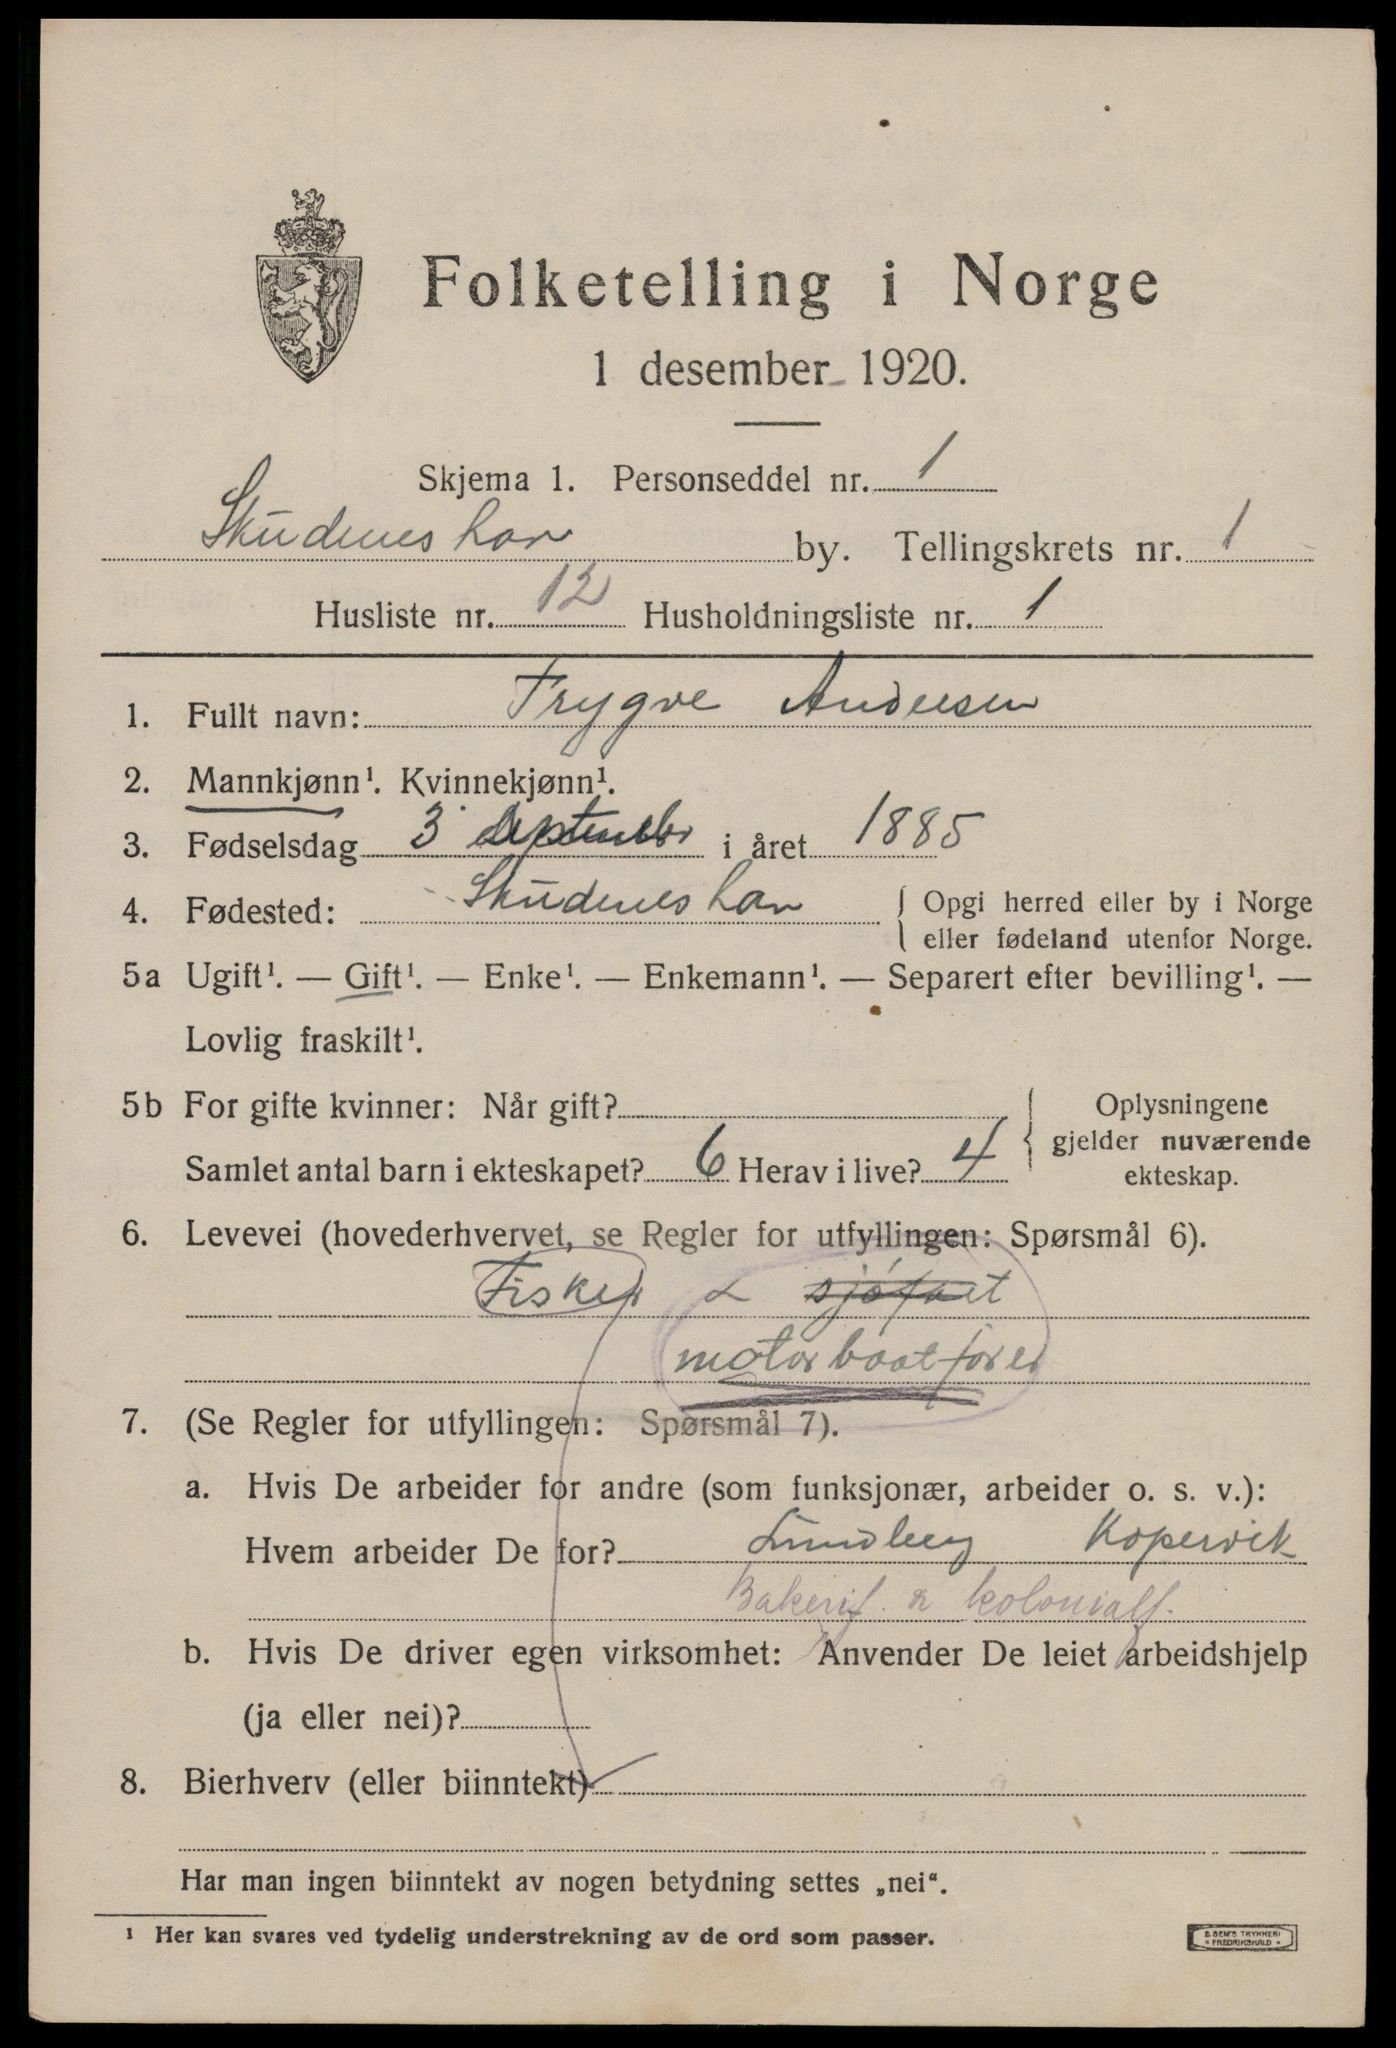 Folketelling i Norge
1 desember 1920.
Skjema 1. Personseddel nr. 1
Skudeneshavn by. Tellingskrets nr. 1
Husliste nr. 12 Husholdningsliste nr. 1
1. Fullt navn: Trygve Andersen
2. Mannkjønn¹. Kvinnekjønn¹.
3. Fødselsdag 3 september i året 1885
4. Fødested: Skudeneshavn { Opgi herred eller by i Norge
eller fødeland utenfor Norge.
5a Ugift¹. — Gift¹. — Enke¹. — Enkemann¹. — Separert efter bevilling¹. —
Lovlig fraskilt¹.
5b For gifte kvinner: Når gift? { Oplysningene
gjelder nuværende
Samlet antal barn i ekteskapet? 6 Herav i live? 4 ekteskap.
6. Levevei (hovederhvervet, se Regler for utfyllingen: Spørsmål 6).
Fisker & sjøfart
motorbaatfører
7. (Se Regler for utfyllingen: Spørsmål 7).
a. Hvis De arbeider for andre (som funksjonær, arbeider o. s. v.):
Hvem arbeider De for? Lundberg Kopervik
Bakerif. & kolonialf.
b. Hvis De driver egen virksomhet: Anvender De leiet arbeidshjelp
(ja eller nei)?
8. Bierhverv (eller biinntekt)
Har man ingen biinntekt av nogen betydning settes „nei“.
¹ Her kan svares ved tydelig understrekning av de ord som passer.
E. SEM'S TRYKKERI
FREDRIKSHALD